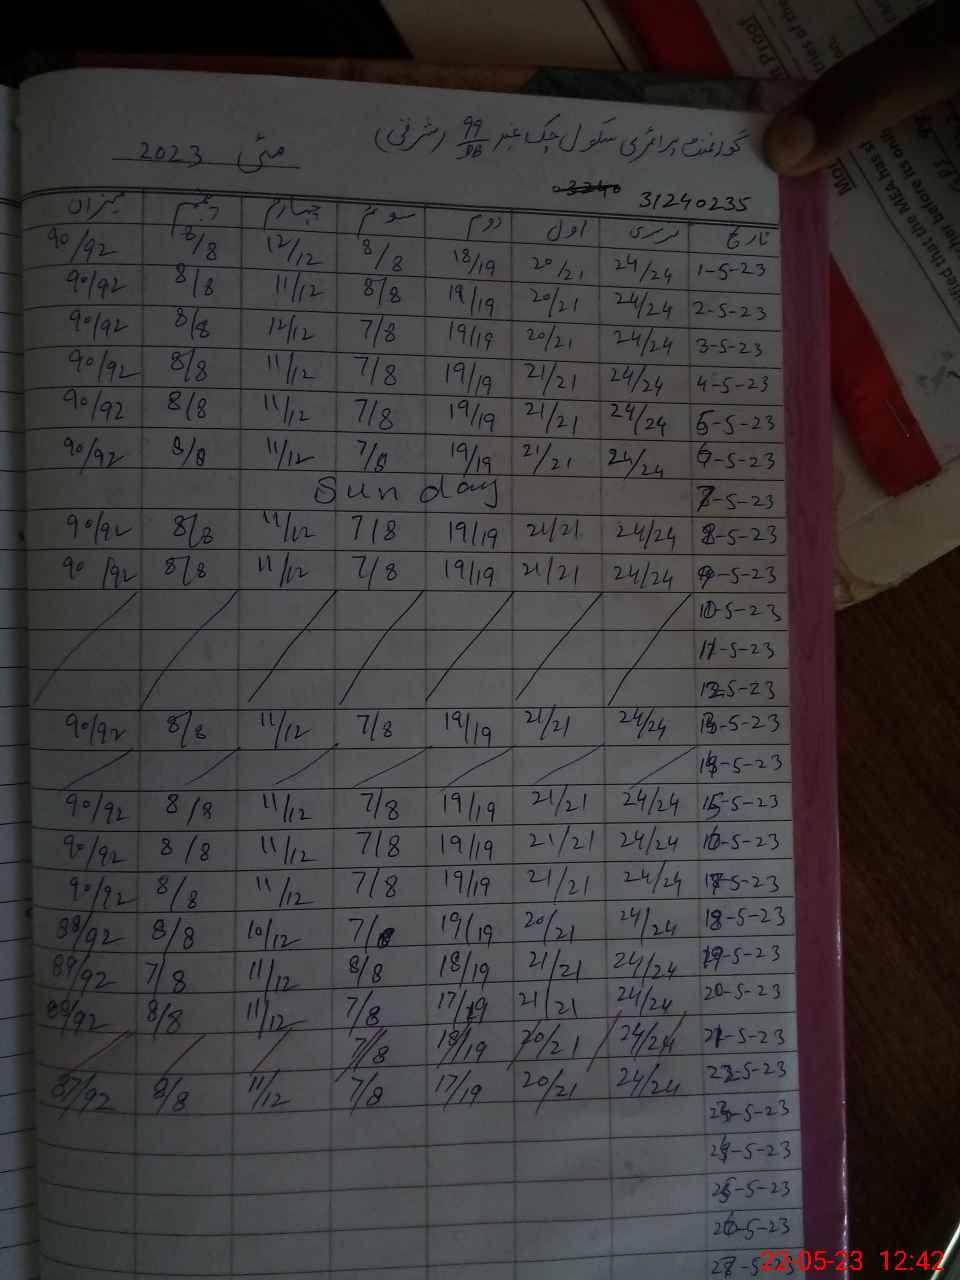 گورنمنٹ پرائمری سکول چک نمبر 99/DB (شرقی)
مئی 2023
31240235
تاریخ نرسری اول دوم سوئم چہارم پنجم میزان
1-5-23 24/24 20/21 18/19 8/8 12/12 8/8 90/92
2-5-23 24/24 20/21 19/19 8/8 11/12 8/8 90/92
3-5-23 24/24 20/21 19/19 7/8 12/12 8/8 90/92
4-5-23 24/24 21/21 19/19 7/8 11/12 8/8 90/92
5-5-23 24/24 21/21 19/19 7/8 11/12 8/8 90/92
6-5-23 24/24 21/21 19/19 7/8 11/12 8/8 90/92
7-5-23 Sunday
8-5-23 24/24 21/21 19/19 7/8 11/12 8/8 90/92
9-5-23 24/24 21/21 19/19 7/8 11/12 8/8 90/92
10-5-23
11-5-23
12-5-23
13-5-23 24/24 21/21 19/19 7/8 11/12 8/8 90/92
14-5-23
15-5-23 24/24 21/21 19/19 7/8 11/12 8/8 90/92
16-5-23 24/24 21/21 19/19 7/8 11/12 8/8 90/92
17-5-23 24/24 21/21 19/19 7/8 11/12 8/8 90/92
18-5-23 24/24 20/21 19/19 7/8 10/12 8/8 88/92
19-5-23 24/24 21/21 18/19 8/8 11/12 7/8 89/92
20-5-23 24/24 21/21 17/19 7/8 11/12 8/8 88/92
21-5-23 24/24 20/21 18/19 7/8
22-5-23 24/24 20/21 17/19 7/8 11/12 8/8 87/92
23-5-23
24-5-23
25-5-23
26-5-23
27-5-23
22-05-23 12:42